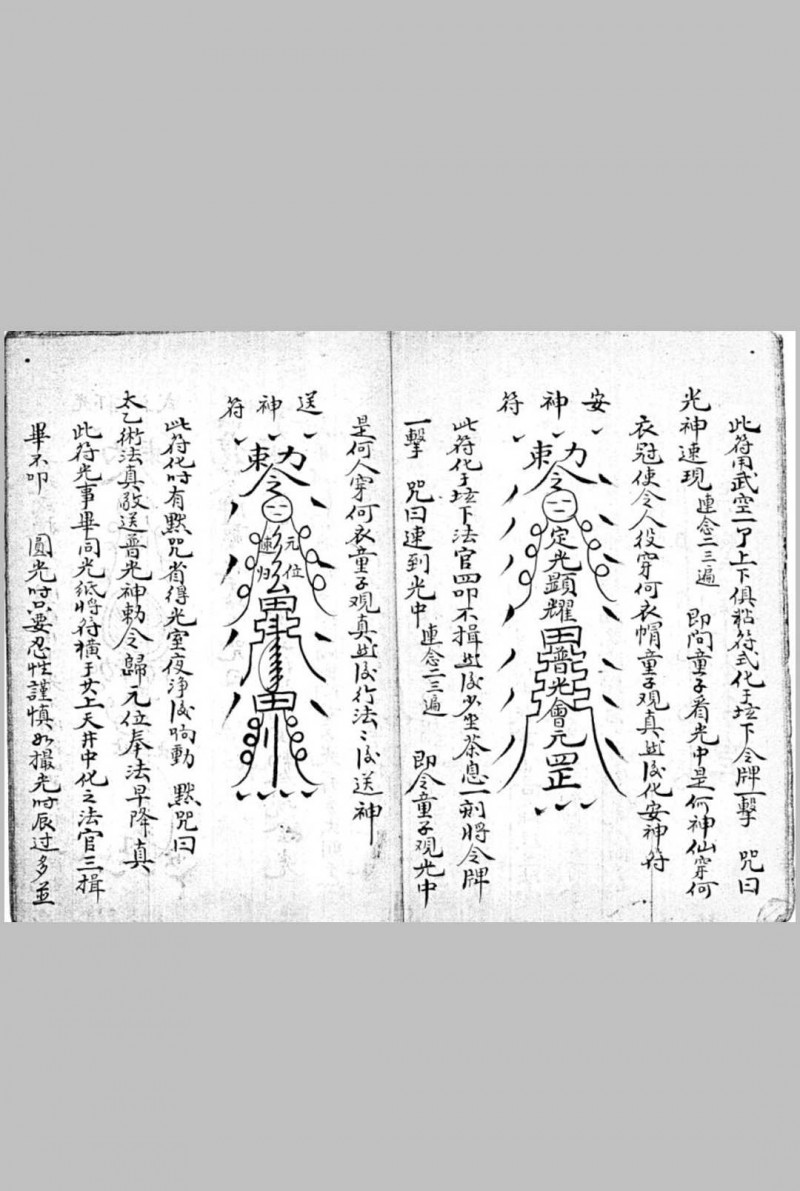 此符用武空一了上下俱粘符式化于坛下令牌一擊 咒曰
光神速現 連念二三遍 即问童子看光中是何神仙穿何
衣冠使令人役穿何衣帽童子观真此后化安神符
安神符
勅令
定光顕耀
普光會元
罡
此符化于坛下法官四叩不揖此后少坐茶息一刻將令牌
一擊 咒曰速到光中 連念二三遍 即令童子观光中
是何人穿何衣童子观真此后行法〻后送神
送神符
勅令
元位
速归
此符化时有默咒省得光室夜浄后响動 默咒曰
太乙術法真敬送普光神勅令歸元位奉法早降真
此符光事畢同光纸將符横于其上天井中化之法官三揖
畢不叩 圓光时只要忍性謹慎如撮光时辰过多並